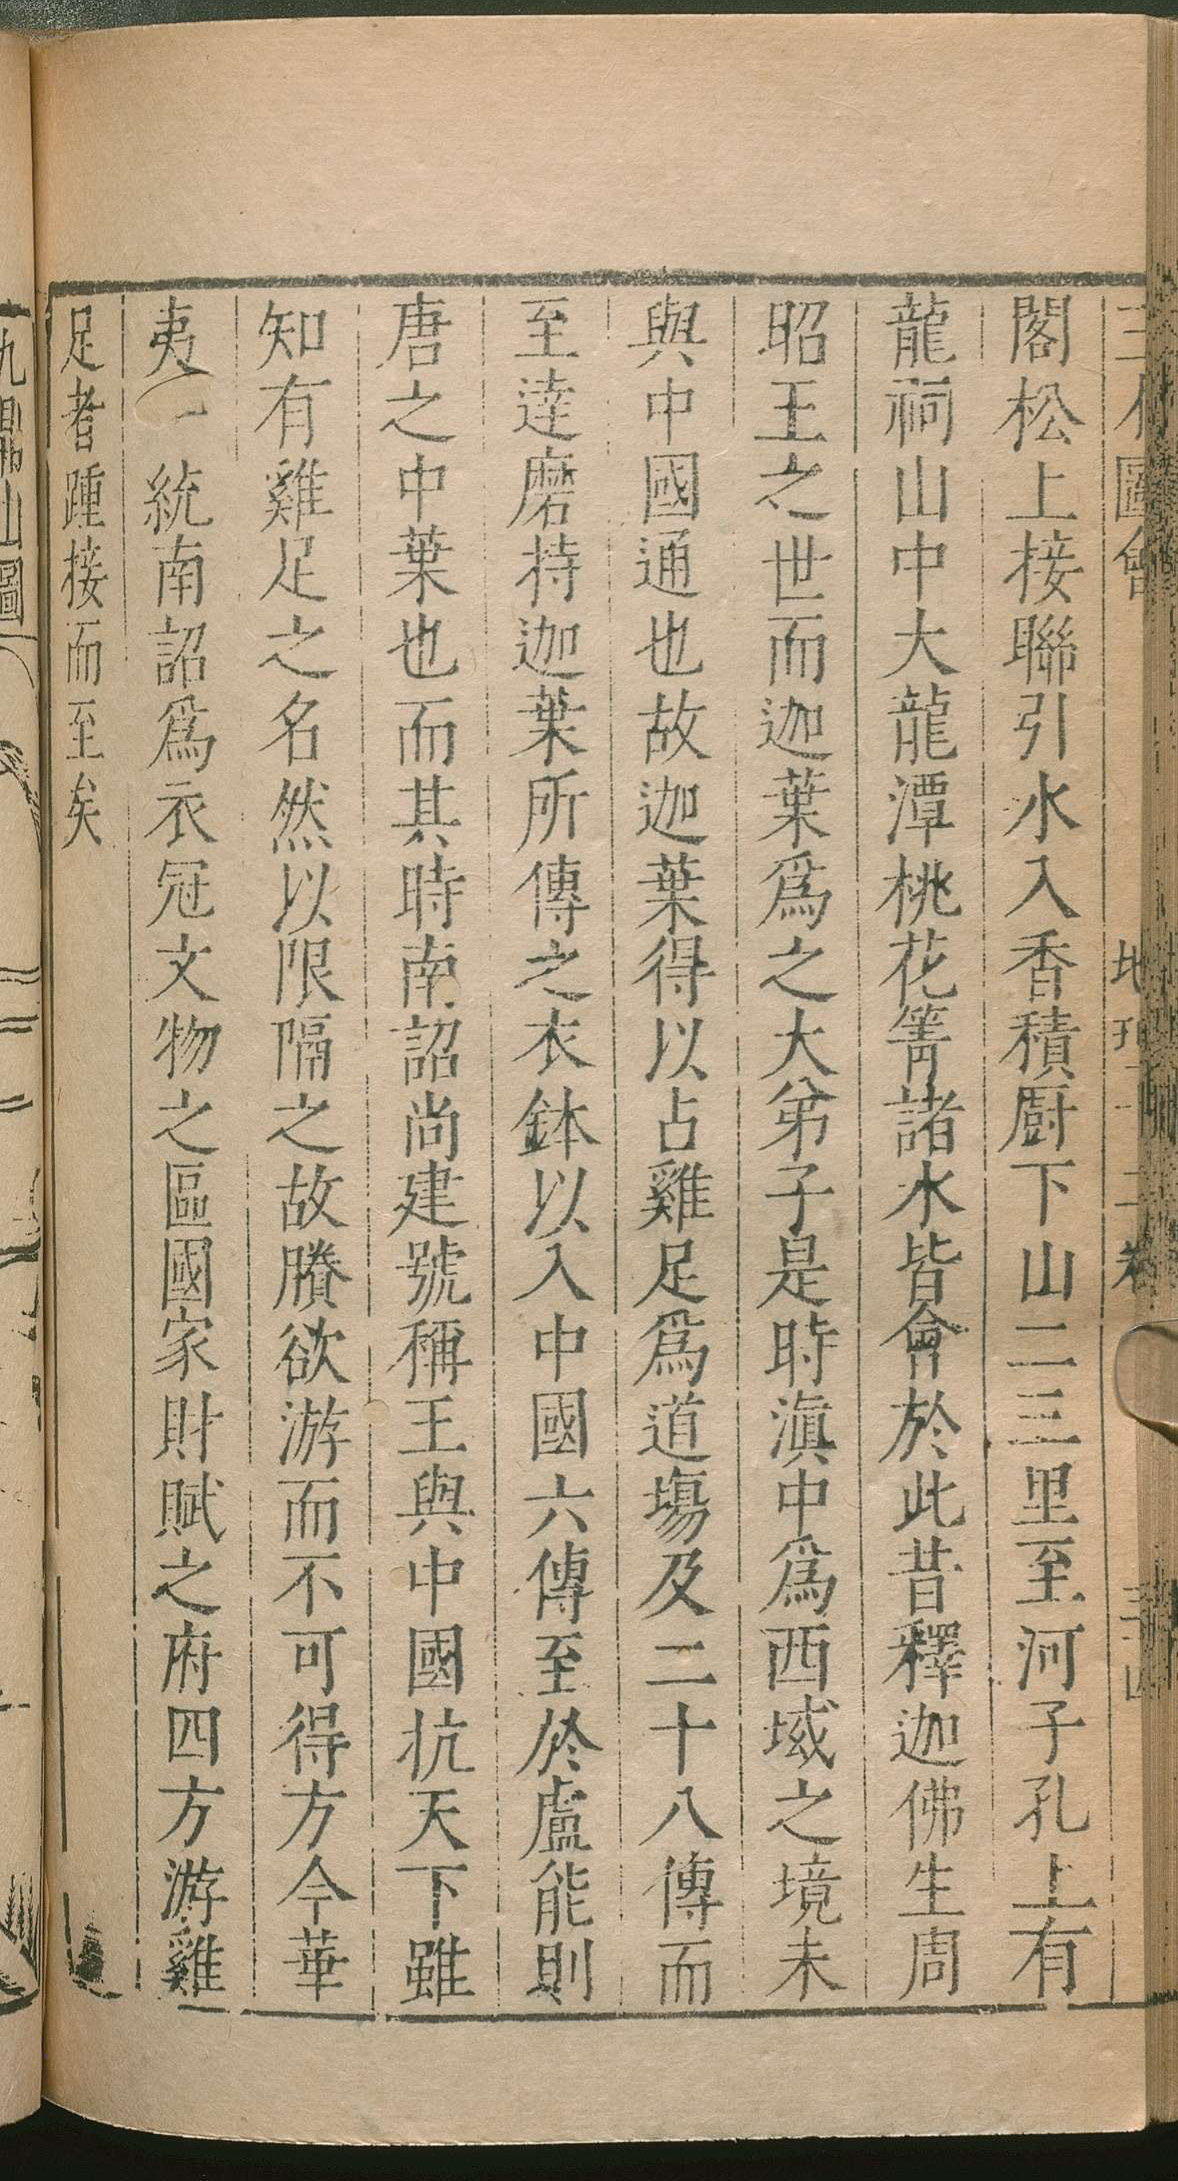 三才圖會 地理十二卷
閣松上接聯引水入香積厨下山二三里至河子孔上有
龍祠山中大龍潭桃花箐諸水皆會於此昔釋迦佛生周
昭王之世而迦葉爲之大弟子是時滇中爲西域之境未
與中國通也故迦葉得以占雞足爲道塲及二十八傳而
至逹磨持迦葉所傳之衣鉢以入中國六傳至於盧能則
唐之中葉也而其時南詔尚建號稱王與中國抗天下雖
知有雞足之名然以限隔之故賸欲游而不可得方今華
夷一統南詔爲衣冠文物之區國家財賦之府四方游雞
足者踵接而至矣
九鼎山圖